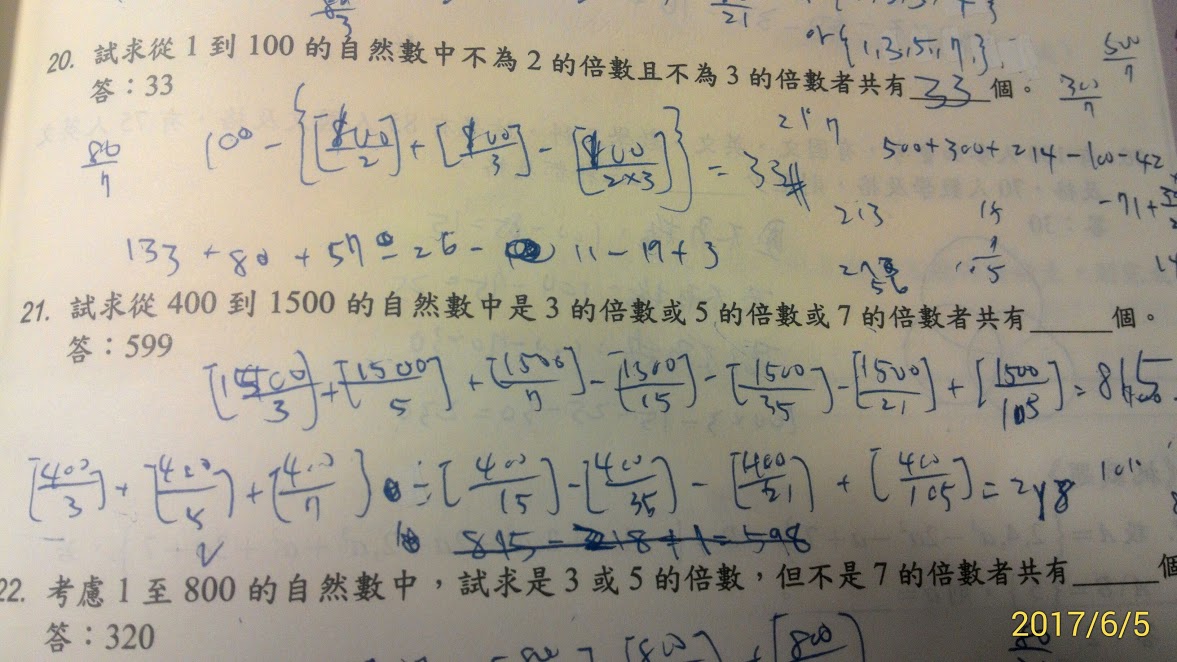 or {1,3,5,7,}
500/7
20. 試求從 1 到 100 的自然數中不為 2 的倍數且不為 3 的倍數者共有 33 個。
300/7
答：33
80/7
100 - {[100/2] + [100/3] - [100/2×3]} = 33#
500+300+214-100-42
-71+
133 + 80 + 57 - 26 - 11 - 19 + 3
21. 試求從 400 到 1500 的自然數中是 3 的倍數或 5 的倍數或 7 的倍數者共有______個。
答：599
[1500/3] + [1500/5] + [1500/7] - [1500/15] - [1500/35] - [1500/21] + [1500/105] = 815
[400/3] + [400/5] + [400/7] - [400/15] - [400/35] - [400/21] + [400/105] = 218
815 - 218 + 1 = 598
22. 考慮 1 至 800 的自然數中，試求是 3 或 5 的倍數，但不是 7 的倍數者共有______個
答：320
2017/6/5